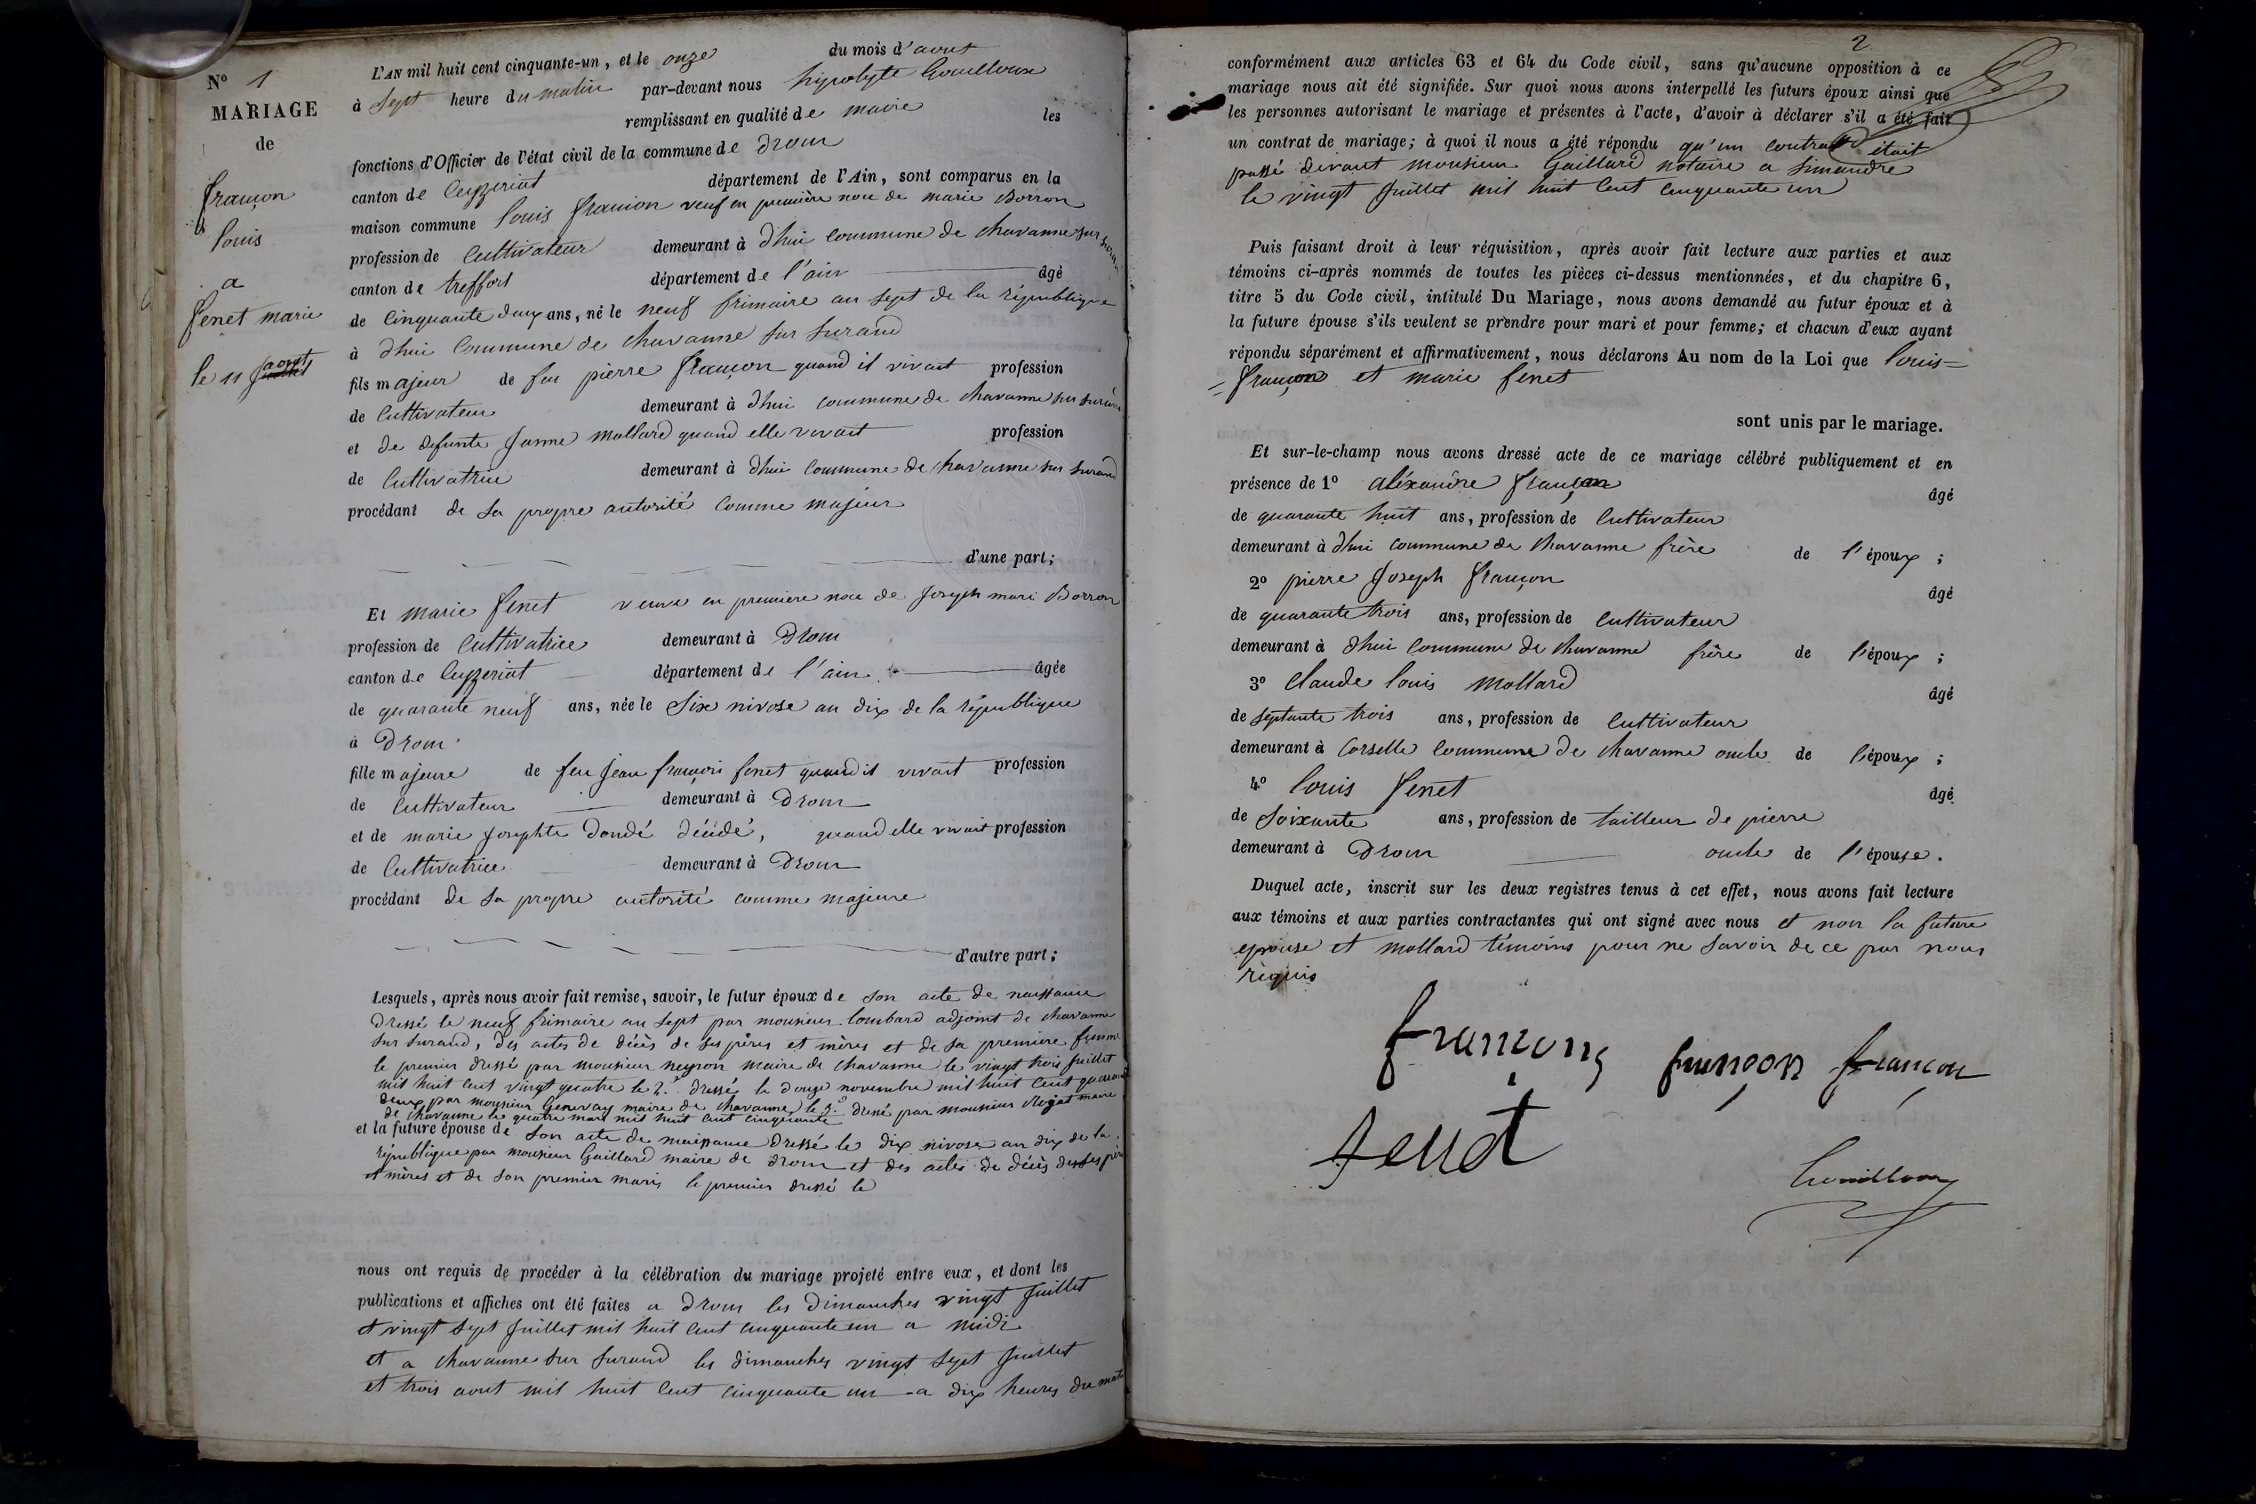 N° 1
MARIAGE
de
françon
louis
a
fenet marie
le 11 aout juillet
L'AN mil huit cent cinquante-un, et le onze du mois d'aout
à sept heure du matin par-devant nous hipolyte Gouilloux
remplissant en qualité de maire les
fonctions d'Officier de l'état civil de la commune de drom
canton de Ceyzeriat département de l'Ain, sont comparus en la
maison commune louis francon veuf en première noce de marie Borron
profession de cultivateur demeurant à dhui commune de chavanne sur surand
canton de treffort département de l'ain âgé
de cinquante deux ans, né le neuf frimaire an sept de la république
à dhui commune de chavanne sur surand
fils majeur de feu pierre françon quand il vivait profession
de cultivateur demeurant à dhui commune de chavanne sur surand
et de defunte Janne mollard quand elle vivait profession
de cultivatrice demeurant à dhui commune de chavanne sur surand
procédant de sa propre autorité comme majeur
d'une part;
Et marie fenet veuve en première noce de Joseph mari Borron
profession de cultivatrice demeurant à Drom
canton de Ceyzeriat département de l'ain âgée
de quarante neuf ans, née le six nivose an dix de la république
à Drom
fille majeure de feu Jean françois fenet quand il vivait profession
de cultivateur demeurant à Drom
et de marie Josephte Dondé décédé, quand elle vivait profession
de cultivatrice demeurant à Drom
procédant de sa propre autorité comme majeure
d'autre part;
Lesquels, après nous avoir fait remise, savoir, le futur époux de son acte de naissance
dressé le neuf frimaire an sept par monsieur lombard adjoint de chavanne
sur surand, des actes de décès de ses pères et mères et de sa première femme
le premier dressé par monsieur neyron maire de chavanne le vingt trois juillet
mil huit cent vingt quatre le 2.e dressé le douze novembre mil huit cent quarante
deux par monsieur Genevay maire de chavanne le 3.e dressé par monsieur maire
de chavanne le quatre mars mil huit cent cinquante
et la future épouse de son acte de naissance dressé le dix nivose an dix de la
république par monsieur Gaillard maire de drom et des actes de décès de ses pères
et mères et de son premier maris le premier dressé le
nous ont requis de procéder à la célébration du mariage projeté entre eux, et dont les
publications et affiches ont été faites a drom les dimanches vingt juillet
et vingt sept juillet mil huit cent cinquante un a midi
et a chavanne sur surand les dimanches vingt sept juillet
et trois aout mil huit cent cinquante un a dix heures du matin
2
conformément aux articles 63 et 64 du Code civil, sans qu'aucune opposition à ce
mariage nous ait été signifiée. Sur quoi nous avons interpellé les futurs époux ainsi que
les personnes autorisant le mariage et présentes à l'acte, d'avoir à déclarer s'il a été fait
un contrat de mariage; à quoi il nous a été répondu qu'un contrat était
passé devant monsieur Gaillard notaire a simandre
le vingt juillet mil huit cent cinquante un
Puis faisant droit à leur réquisition, après avoir fait lecture aux parties et aux
témoins ci-après nommés de toutes les pièces ci-dessus mentionnées, et du chapitre 6,
titre 5 du Code civil, intitulé Du Mariage, nous avons demandé au futur époux et à
la future épouse s'ils veulent se prendre pour mari et pour femme; et chacun d'eux ayant
répondu séparément et affirmativement, nous déclarons Au nom de la Loi que louis=
=françon et marie fenet
sont unis par le mariage.
Et sur-le-champ nous avons dressé acte de ce mariage célébré publiquement et en
présence de 1° aléxandre françon âgé
de quarante huit ans, profession de cultivateur
demeurant à dhui commune de chavanne frère de l'époux;
2° pierre Joseph françon âgé
de quarante trois ans, profession de cultivateur
demeurant à dhui commune de chavanne frère de l'époux;
3° Claude louis mollard âgé
de septante trois ans, profession de cultivateur
demeurant à Corselle commune de chavanne oncle de l'époux;
4° louis fenet âgé
de soixante ans, profession de tailleur de pierre
demeurant à Drom oncle de l'épouse.
Duquel acte, inscrit sur les deux registres tenus à cet effet, nous avons fait lecture
aux témoins et aux parties contractantes qui ont signé avec nous et non la future
epouse et mollard témoins pour ne savoir de ce par nous
requis
françons françon françon
fenet
Gouilloux